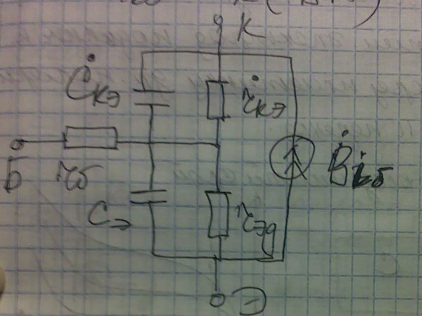 К
Ċкэ
ṙкэ
Б
rб
Ḃiб
Cэ
rэд
Э